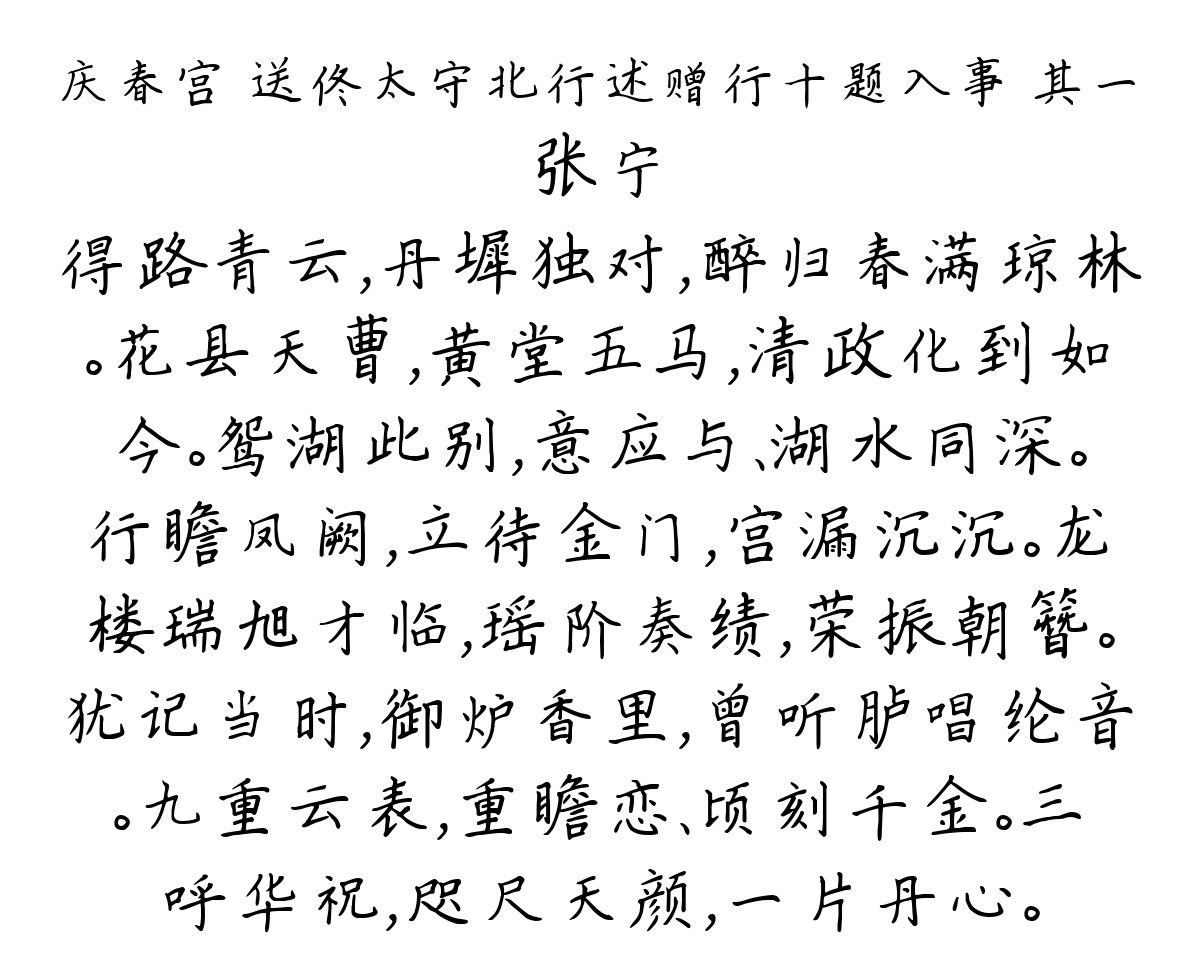 庆春宫 送佟太守北行述赠行十题入事 其一
张宁
得路青云,丹墀独对,醉归春满琼林
。花县天曹,黄堂五马,清政化到如
今。鸳湖此别,意应与、湖水同深。
行瞻凤阙,立待金门,宫漏沉沉。龙
楼瑞旭才临,瑶阶奏绩,荣振朝簪。
犹记当时,御炉香里,曾听胪唱纶音
。九重云表,重瞻恋、顷刻千金。三
呼华祝,咫尺天颜,一片丹心。